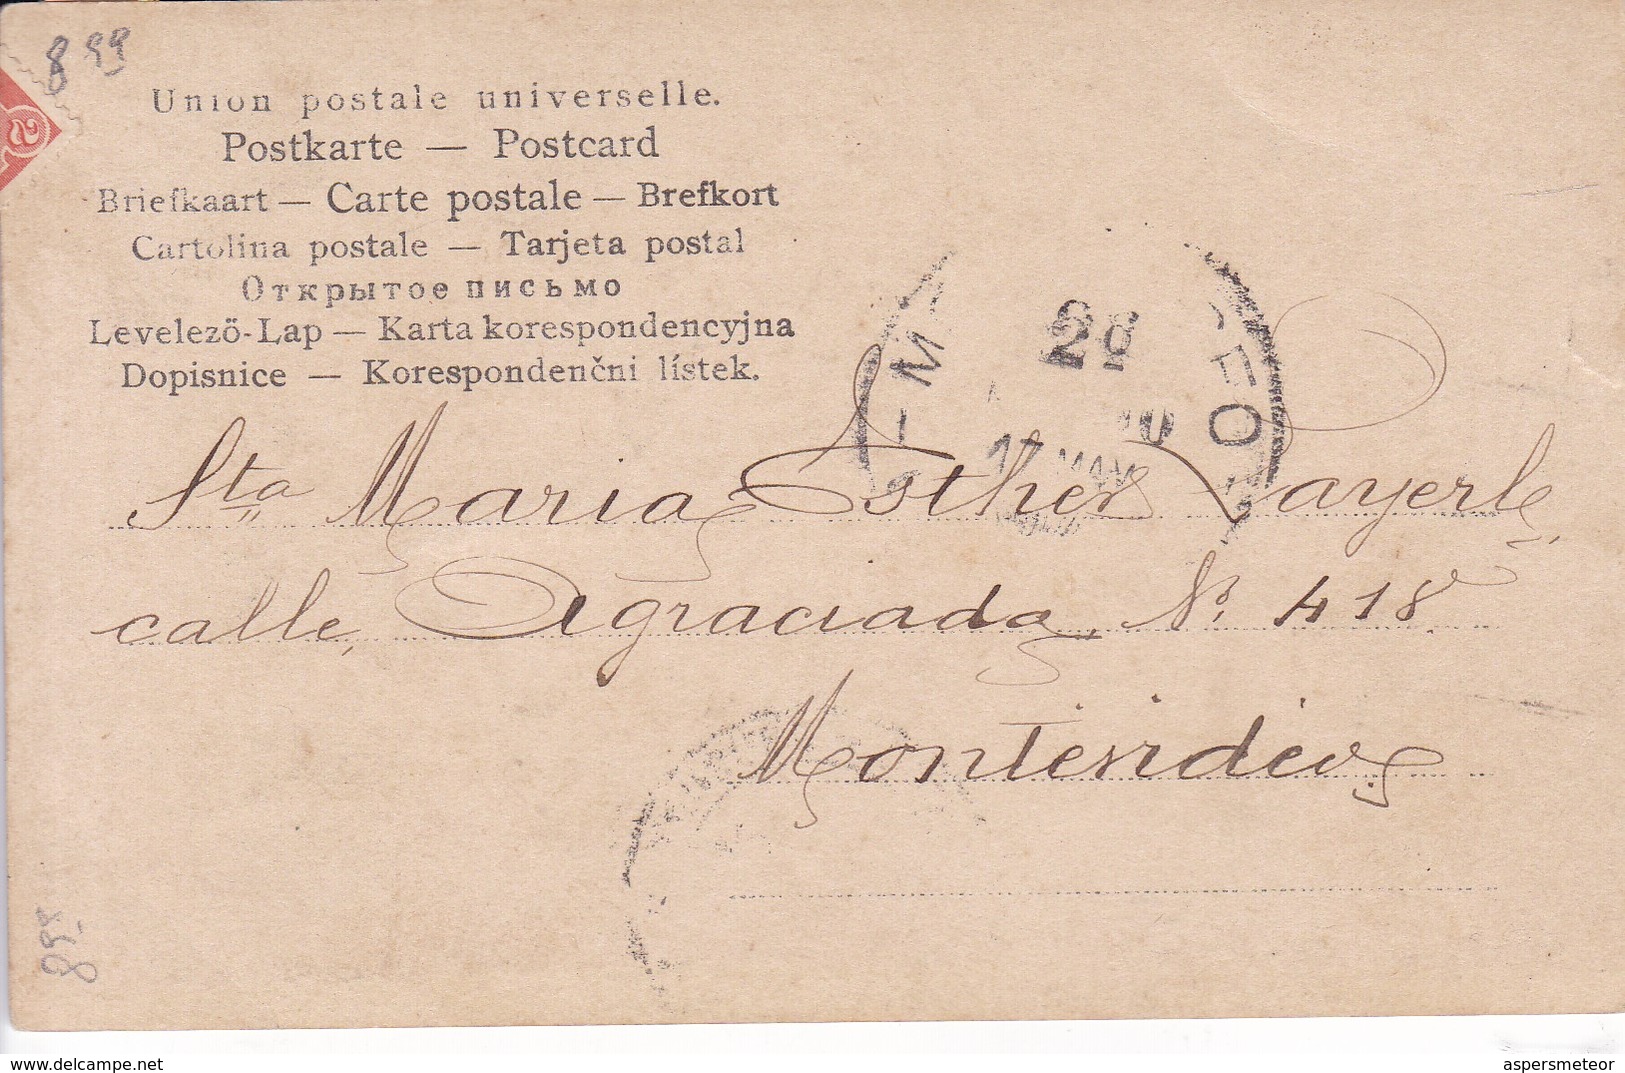 8 99
Union postale universelle.
Postkarte — Postcard
Briefkaart — Carte postale — Brefkort
Cartolina postale — Tarjeta postal
Открытое письмо
Levelező-Lap — Karta korespondencyjna
Dopisnice — Korespondenčni lístek.
Sta Maria Esther Layerle,
calle, Agraciada, No. 418.
Montevideo.
899
www.delcampe.net
aspersmeteor